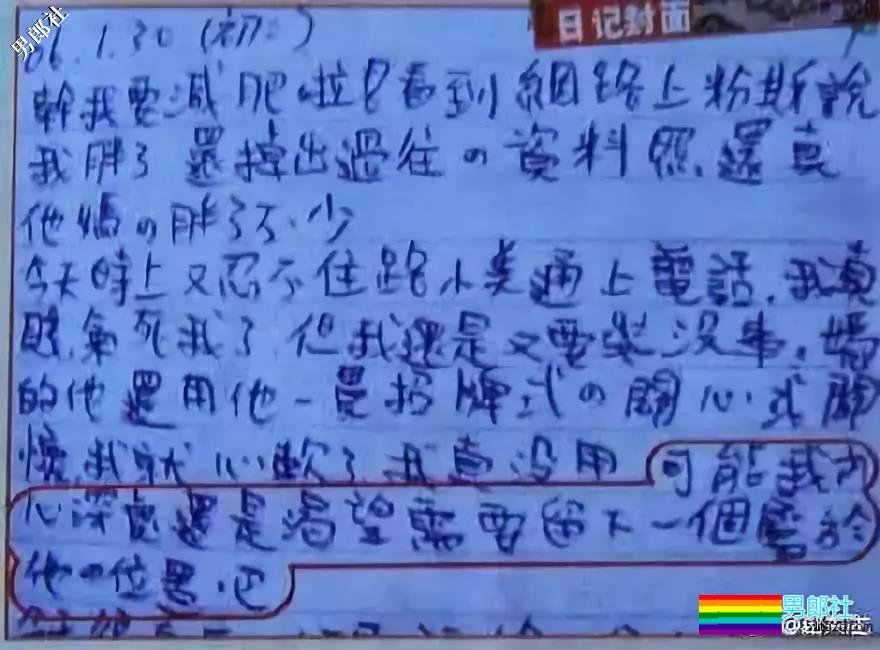 男郎社
日记封面
06.1.30 (初二)
幹我要減肥啦!看到網路上粉斯說
我胖了 還掉出過往の資料照,還真
他媽の胖了不少
今天晚上又忍不住跟小 通上電話,我真
 氣死我了,但我還是又要裝没事,媽
的他還用他一貫招牌式の關心,式關
懷,我就心軟了,我真没用 可能我內
心深處還是渴望需要留下一個屬於
他の位置吧
男郎社